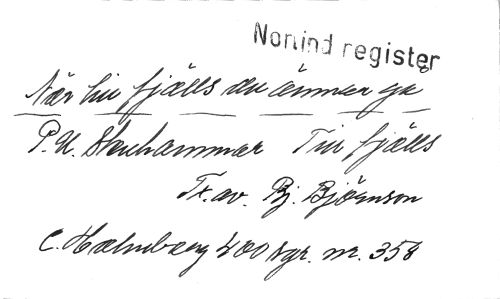 Norind register
När till fjälls du ämnar gå
P.U. Stenhammar Till fjälls
Tx. av. Bj. Björnson
C. Holmberg 400 sgr. nr. 358